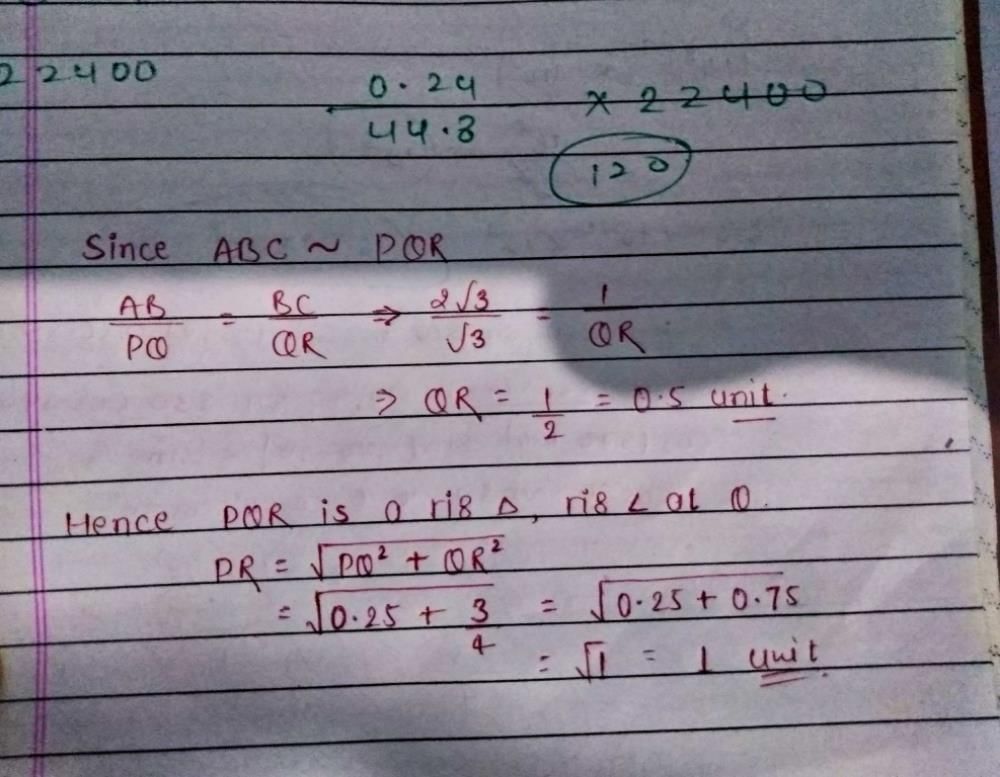 22400
0.24/44.8 × 22400
120
Since ABC ~ PQR
AB/PQ = BC/QR ⇒ 2√3/√3 = 1/QR
⇒ QR = 1/2 = 0.5 unit.
Hence PQR is a rig Δ, rig ∠ at Q.
PR = √PQ² + QR²
= √0.25 + 3/4 = √0.25 + 0.75
= √1 = 1 unit.